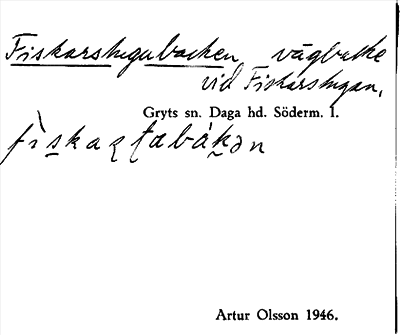 Fiskarstugubacken vägbacke
vid Fiskarstugan.
Gryts sn. Daga hd. Söderm. l.
Artur Olsson 1946.